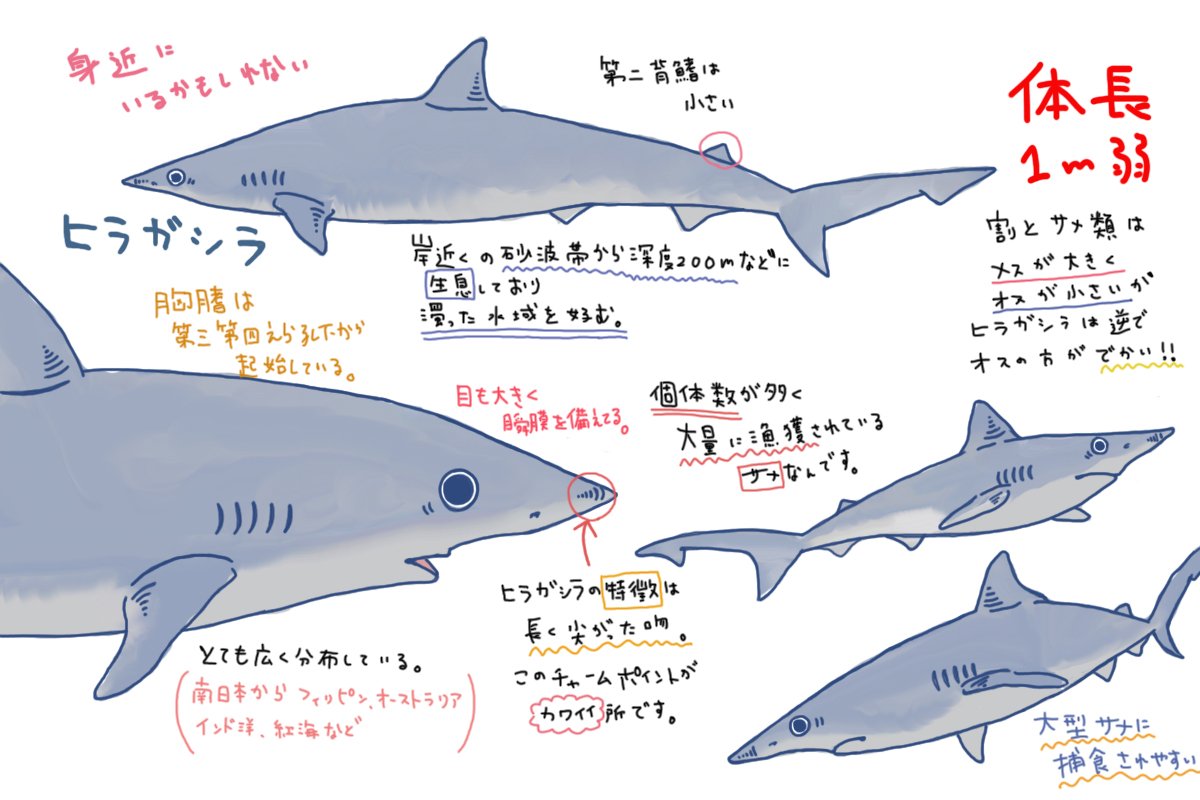 身近に
いるかもしれない
第二背鰭は
小さい
体長
1m弱
ヒラガシラ
岸近くの砂波帯から深度200mなどに
生息しており
濁った水域を好む。
割とサメ類は
メスが大きく
オスが小さいが
ヒラガシラは逆で
オスの方がでかい!!
胸鰭は
第三第四えら孔下から
起始している。
目も大きく
瞬膜を備えてる。
個体数が多く
大量に漁獲されている
サメなんです。
ヒラガシラの特徴は
長く尖がった吻。
このチャームポイントが
カワイイ所です。
とても広く分布している。
(南日本からフィリピン、オーストラリア
インド洋、紅海など)
大型サメに
捕食されやすい